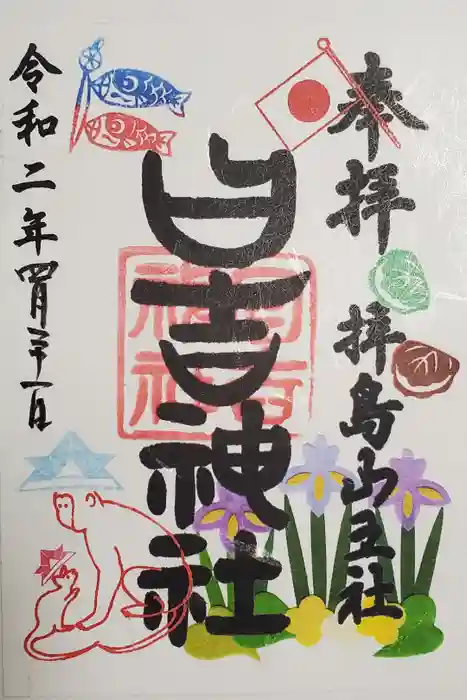 奉拝
拝島山王社
日吉神社
令和二年四月二十一日